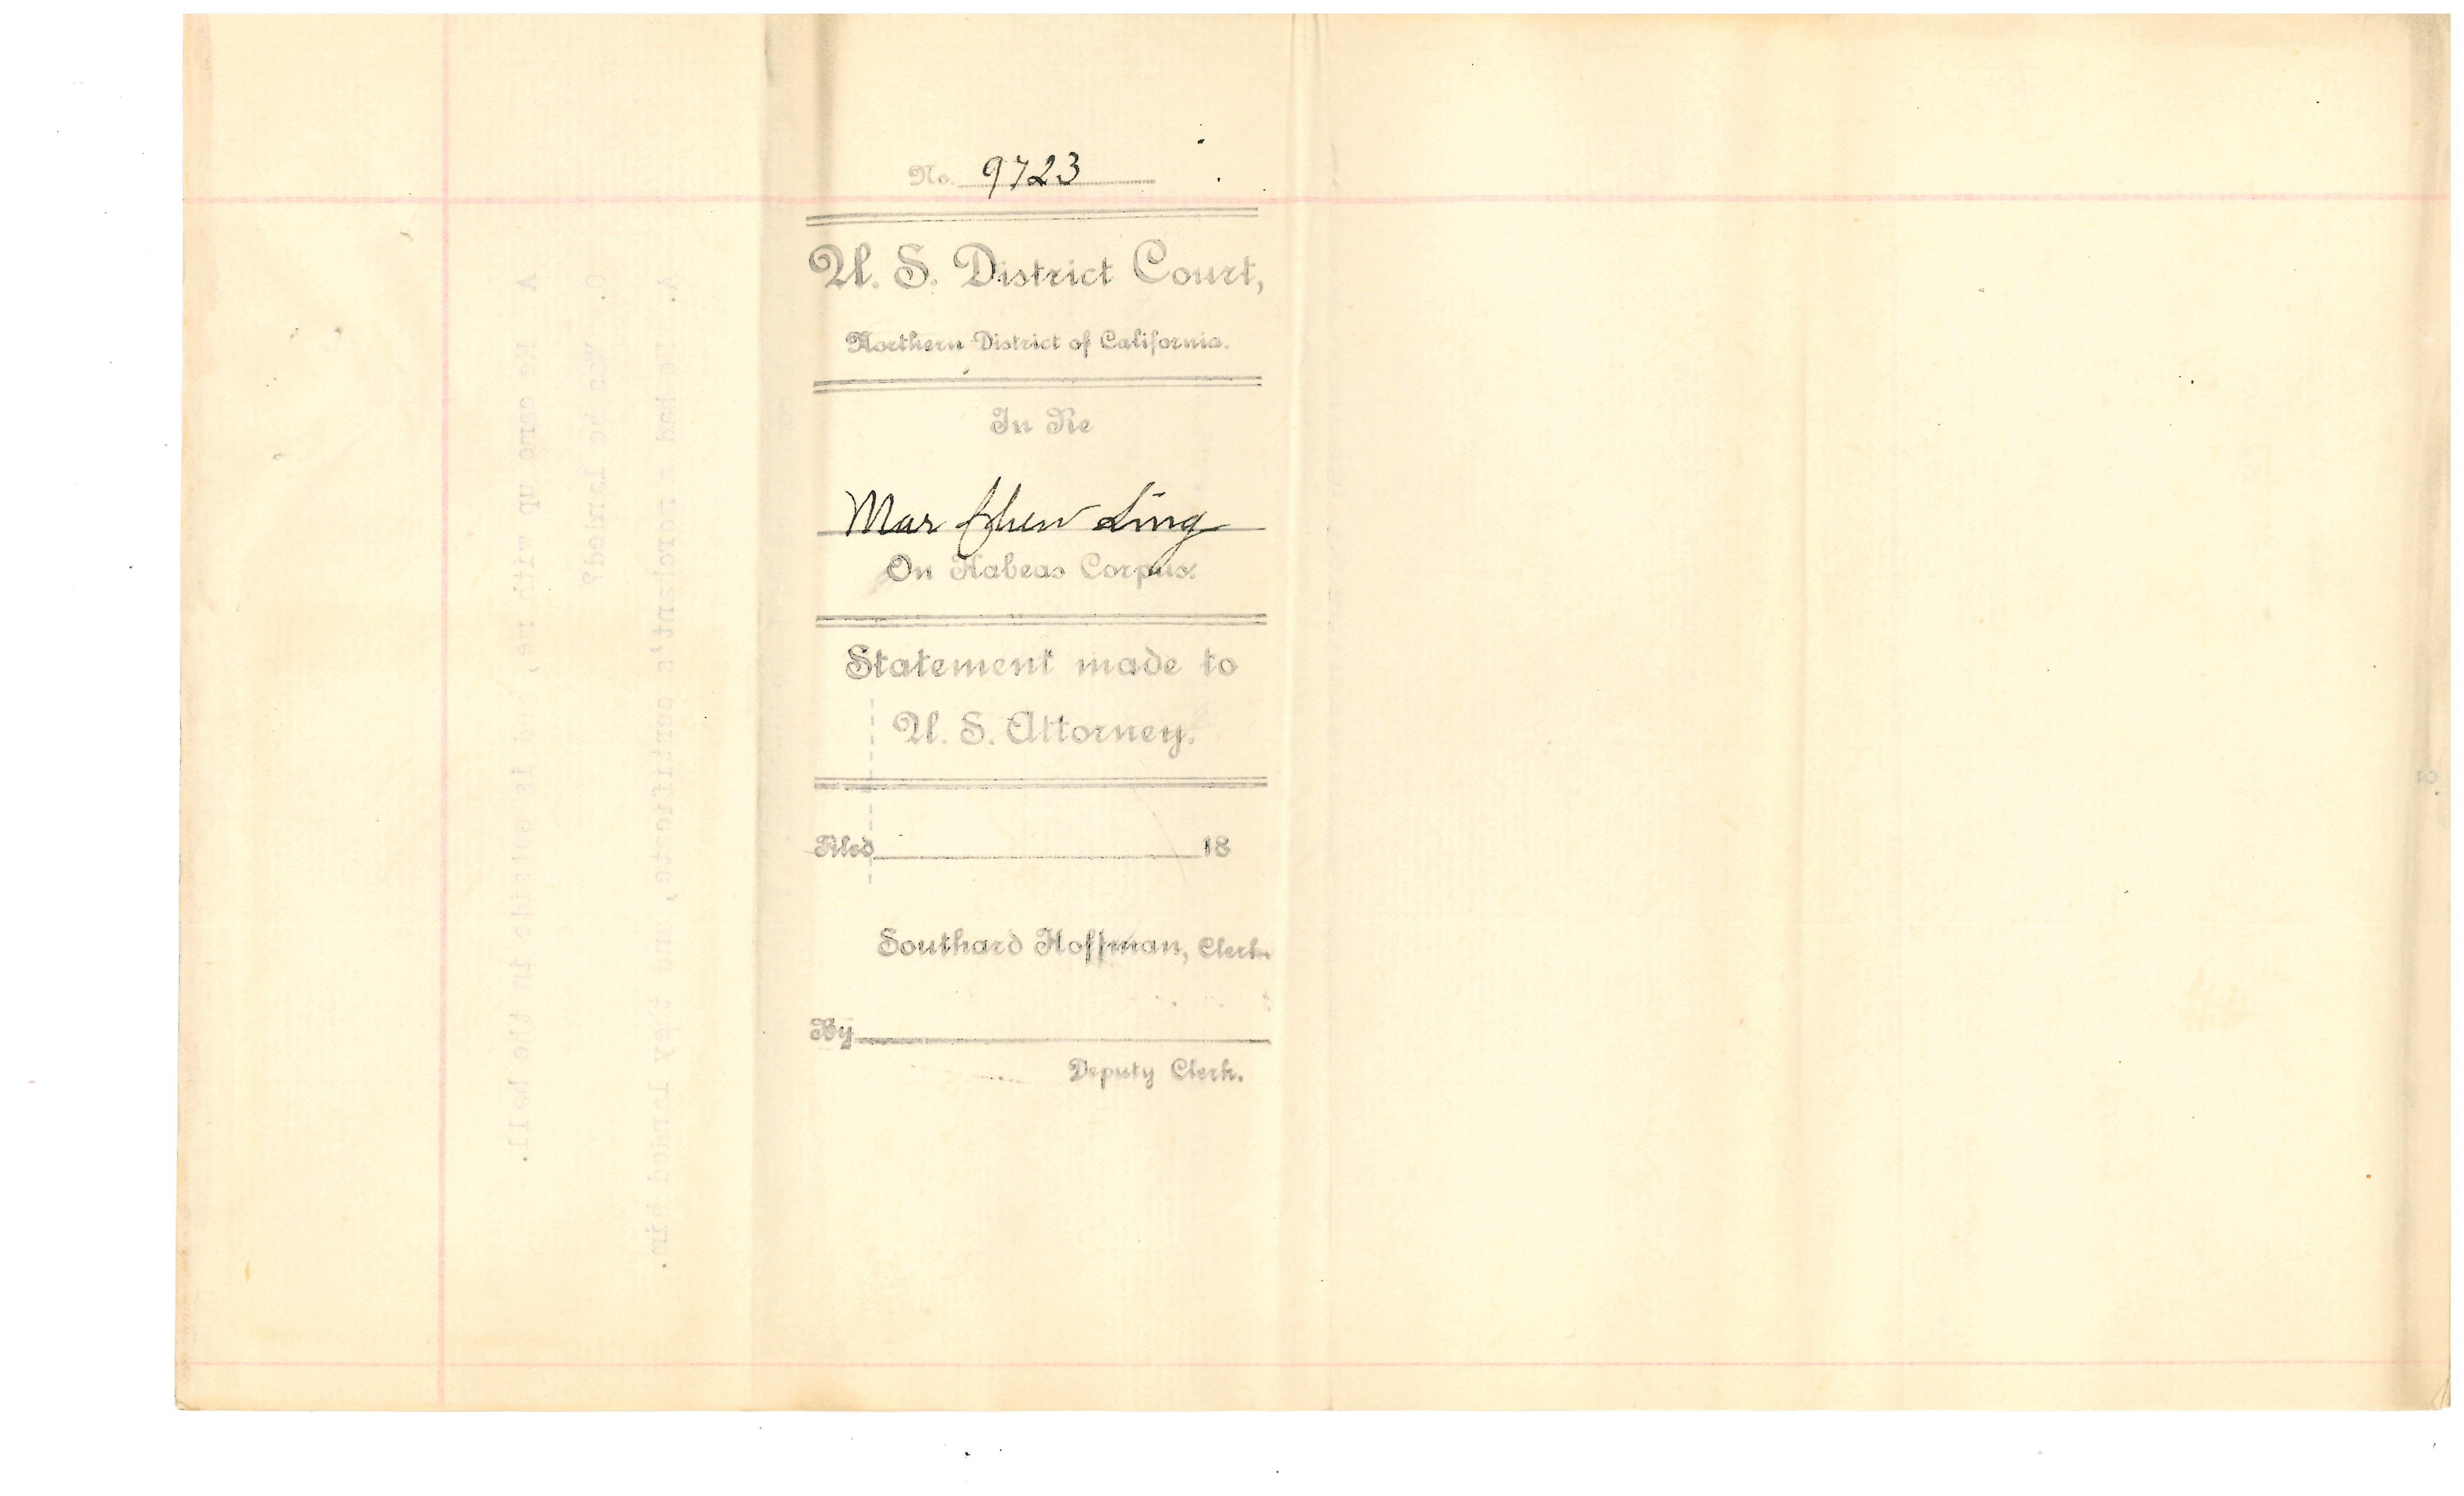 No. 9723
U. S. District Court,
Northern District of California.
In Re
Mar Chew Ling
On Habeas Corpus.
Statement made to
U. S. Attorney.
Filed 18
Southard Hoffman, Clerk.
By
Deputy Clerk.
A. He had a merchant's certificate, and they landed him.
Q. Was he landed?
A He came up with me, and is outside in the hall.